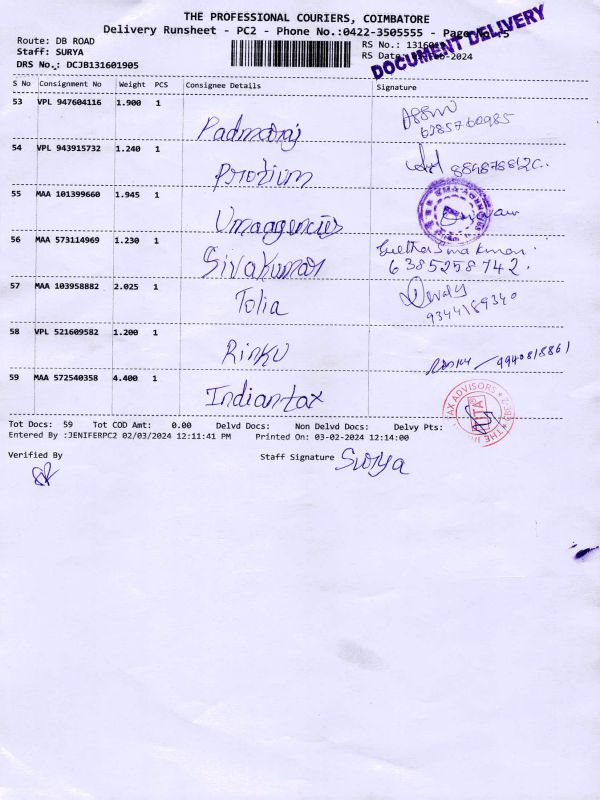 THE PROFESSIONAL COURIERS, COIMBATORE
Delivery Runsheet - PC2 - Phone No.:0422-3505555 - Page No.:5
DOCUMENT DELIVERY
Route: DB ROAD
Staff: SURYA
DRS No.: DCJB131601905
RS No.:
RS Date: -2024
S No Consignment No Weight PCS Consignee Details Signature
53 VPL 947604116 1.900 1 Padmaraj
54 VPL 943915732 1.240 1
55 MAA 101399660 1.945 1 Umaagencies
56 MAA 573114969 1.230 1 Sivakumar
6385258742.
57 MAA 103958882 2.025 1 Tolia
9344189340
58 VPL 521609582 1.200 1 Rinku
9940818861
59 MAA 572540358 4.400 1 Indiantax
TAX ADVISORS
Tot Docs: 59 Tot COD Amt: 0.00 Delvd Docs: Non Delvd Docs: Delvy Pts:
Entered By :JENIFERPC2 02/03/2024 12:11:41 PM Printed On: 03-02-2024 12:14:00
Verified By Staff Signature Surya